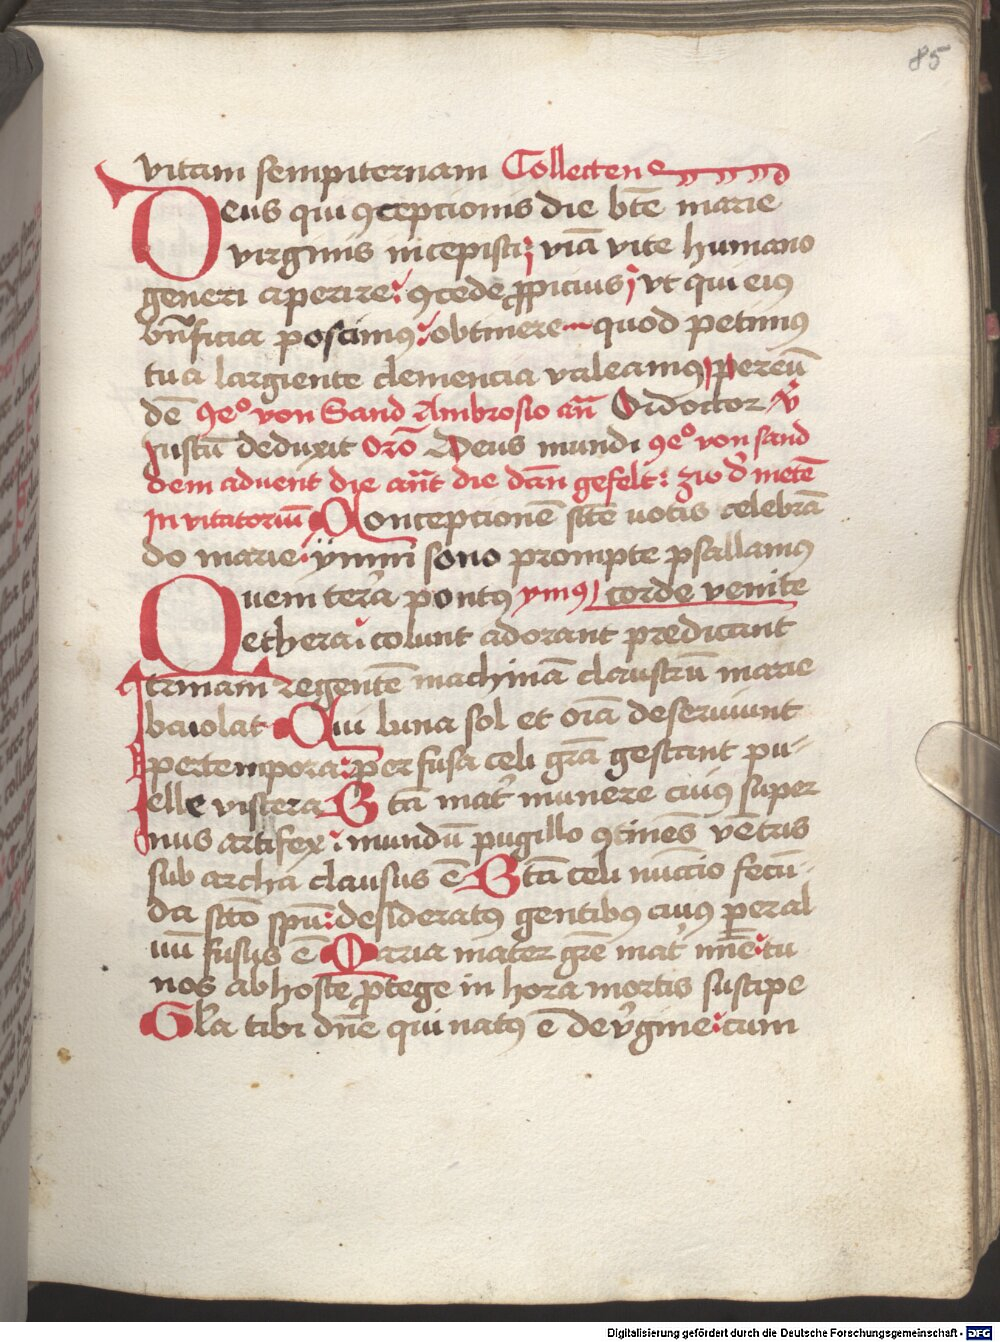 85
vitam sempiternam Collecten
Deus qui ꝯcepcionis die bte̅ marie
virginis incepisti viā vite humano
generi aperire: ꝯcede ꝓpicius vt qui eiꝰ
bn̅ficia poscimꝰ obtinere quod petimꝰ
tua largiente clemencia valeamꝰ per eu̅
de̅ ꝯeº von Sand Ambrosio an̅ O doctor v̅
Justu̅ deduxit Oro̅ Deus mundi ꝯeº von sand
dem aduent die an̅t die dan̅ gefelt: zw d' mete̅
Inuitatoriu̅ Concepcione̅ ste̅ uotis celebra̅
do marie ympni sono prompte psallamus
Quem terra pontꝰ ymꝰ corde venite
ethera colunt adorant predicant
trinam regente̅ machina̅ claustru̅ marie
baiolat Cui luna sol et oīa deseruiunt
per tempora perfusa celi gr̅a gestant pu
elle viscera Bta̅ mat' munere cuiꝰ super
nus artifex mundu̅ pugillo ꝯtine̅s ventris
sub archa clausus e̅ Bta̅ celi nuncio fecu̅
da sct̅o spu̅ desideratꝰ gentibꝰ cuiꝰ per al
uu̅ fusus e̅ Maria mater gr̅e mat' mi̅e tu
nos ab hoste ꝓtege in hora mortis suscipe
Gl̅a tibi dn̅e qui natꝰ e̅ de v'gine cum
Digitalisierung gefördert durch die Deutsche Forschungsgemeinschaft - DFG